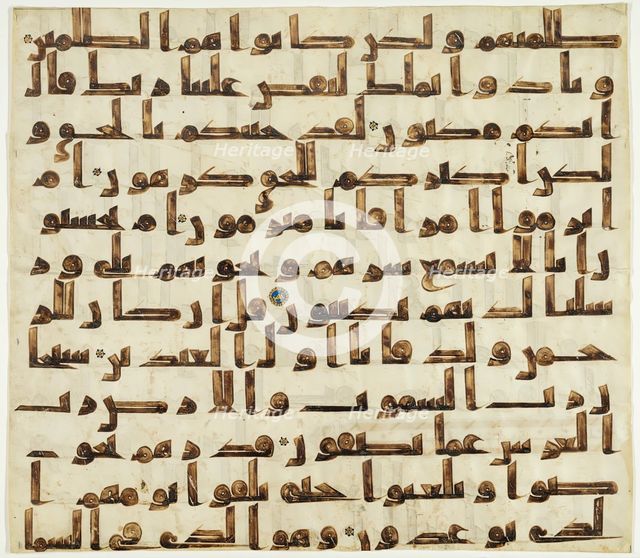 ظلمنهم ولكن كانوا هم الظلمين
ونادوا يملك ليقض علينا ربك قال
انكم مكثون لقد جئنكم بالحق و
لكن اكثركم للحق كرهون ام ا
برموا امرا فانا مبرمون ام يحسبو
ن انا لا نسمع سرهم ونجويهم بلى و ر
سلنا لديهم يكتبون قل ان كان للر
حمن ولد فانا اول العبدين سبحن
رب السموت والارض رب
العرش عما يصفون فذرهم يخو
ضوا ويلعبوا حتى يلقوا يومهم ا
لذي يوعدون وهو الذي في السما